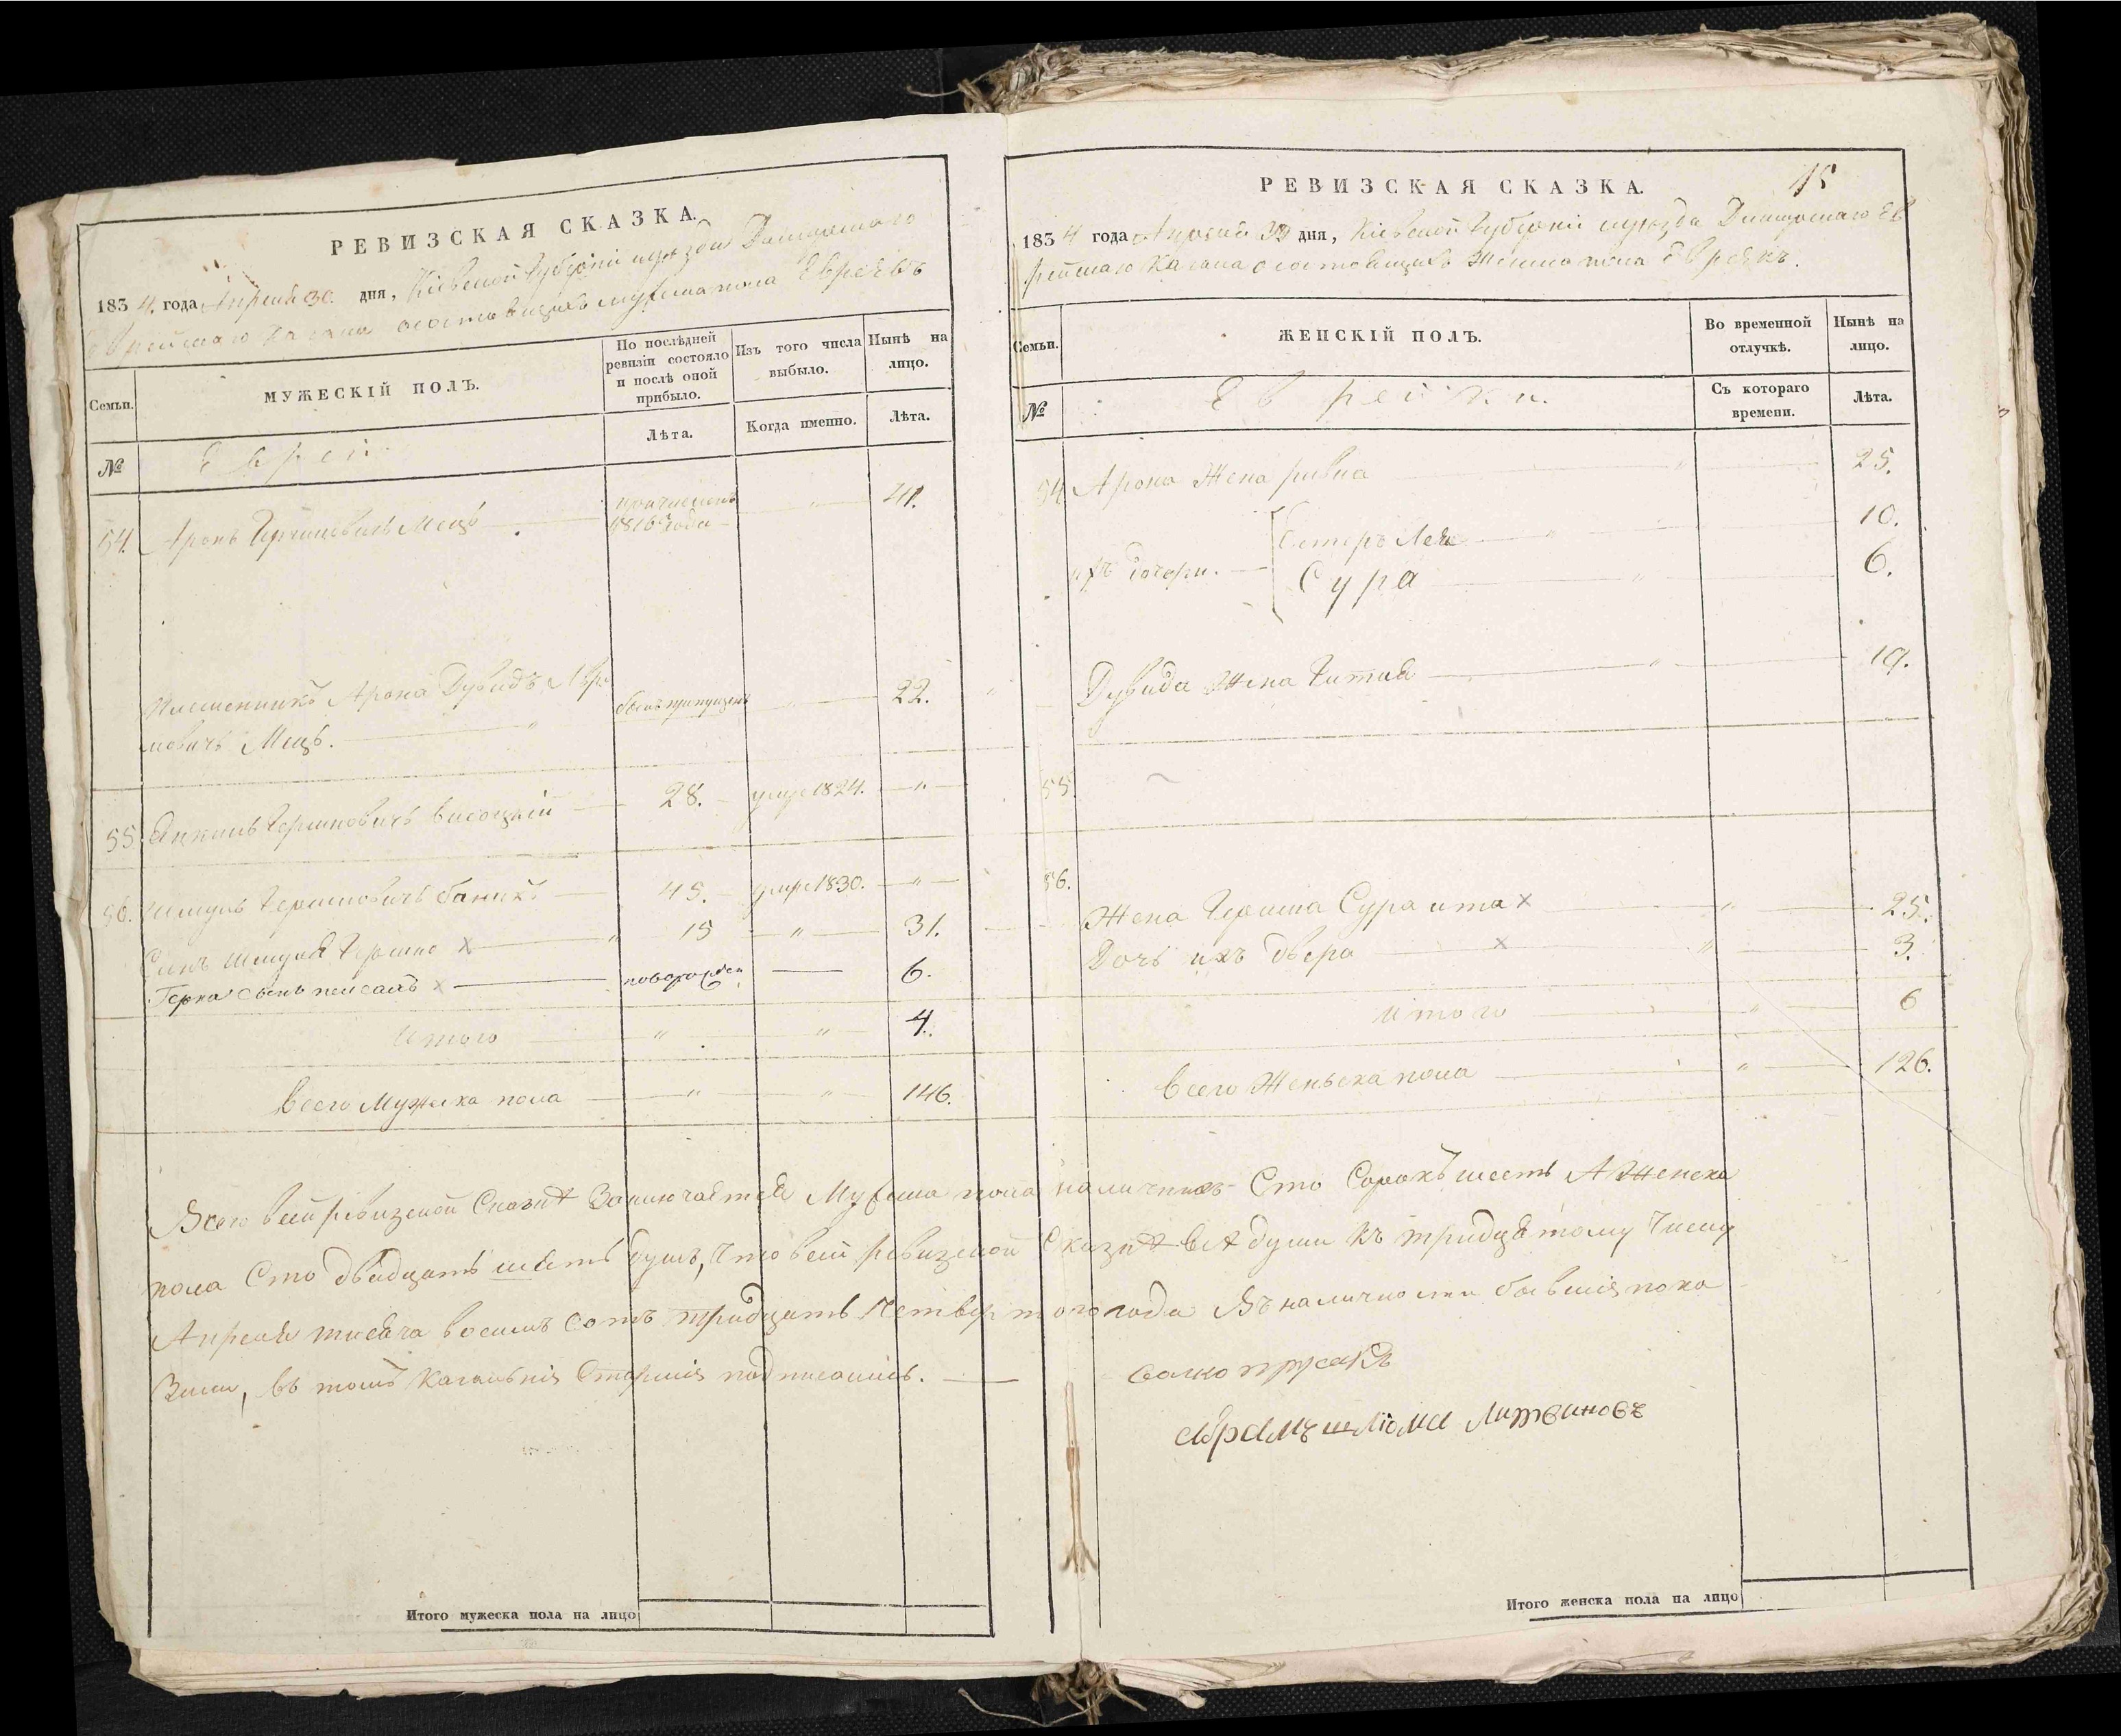 РЕВИЗСКАЯ СКАЗКА.
1834. года Апреля 30. дня, Кіевской Губерніи уезда
Еврейскаго Кагала о состоящихъ мужеска пола Евреевъ
Семьи.
МУЖЕСКІЙ ПОЛЪ.
По послѣдней ревизіи состояло и послѣ оной прибыло.
Изъ того числа выбыло.
Нынѣ на лицо.
№
Евреи
Лѣта.
Когда именно.
Лѣта.
54. Аронъ Мець причисленъ 1816 года " 41.
Племенникъ Арона Дувидъ Авра
мовичъ Мець. " былъ пропущенъ " 22.
55. Янкель Гершковичъ Високій 28. умре 1824. "
56. Шмуль Гершковичъ 45. умре 1830. "
Синъ Шмуля Гершко x " 15 " 31.
Герка сынъ пейсахъ x 6.
Итого " " 4.
Всего Мужеска пола " " 146.
Итого мужеска пола на лицо
РЕВИЗСКАЯ СКАЗКА.
15
1834 года Апреля 30 дня, Кіевской Губерніи уезда Ев
рейскаго Кагала о состоящихъ Женска пола Евреекъ.
Семьи.
ЖЕНСКІЙ ПОЛЪ.
Во временной отлучкѣ.
Нынѣ на лицо.
№
Еврейки.
Съ котораго времени.
Лѣта.
54 Арона Жена ривка " 25.
ихъ дочери. Естеръ Лея " 10.
Сура " 6.
Дувида Жена Гития " 19.
55.
56.
Жена Гершка Сура ита x " 25.
Дочь ихъ двера x " 3.
Итого " 6
Всего Женьска пола " 126.
Всего въ сей ревизской Сказкѣ Заключается Мужеска пола наличнихъ Сто Сорокъ шесть А Женска
пола Сто двадцать шесть душъ, Что въ сей ревизской Сказкѣ всѣ души къ тридцятому Числу
Апреля тисяча восемь сотъ тридцать Четвертого года Въ наличности бывшія пока
зани, въ томъ Кагальнія Старшія подписались.
Абрамъ шлiома Литвиновъ
Итого женска пола на лицо